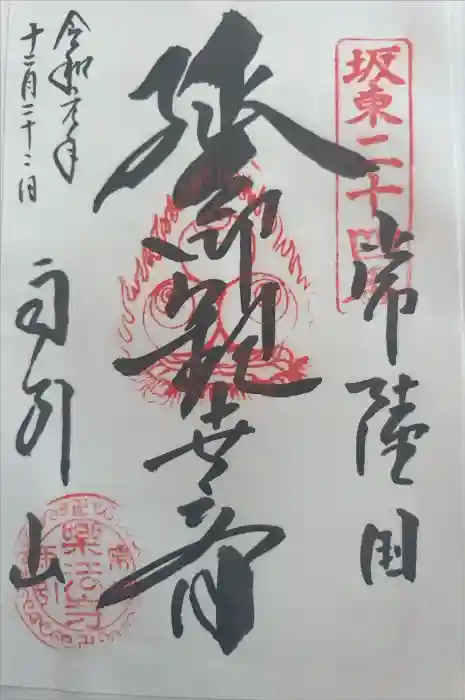 坂東二十四番
常陸国
延命観世音
雨引山
樂法寺
令和元年
十二月二十二日